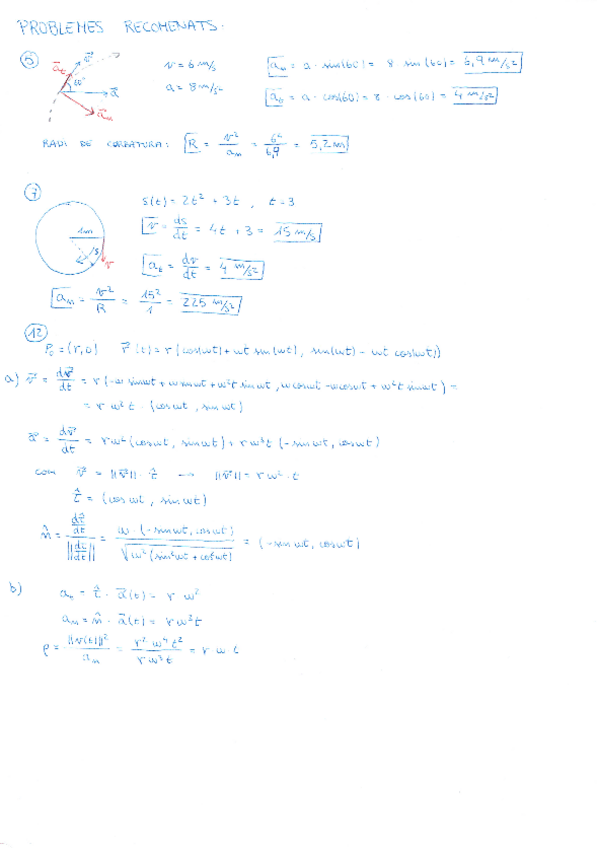 PROBLEMES RECOMENATS.
5 v = 6 m/s a_n = a · sin(60) = 8 · sin(60) = 6,9 m/s²
a_t v 60° a a_n a = 8 m/s² a_t = a · cos(60) = 8 · cos(60) = 4 m/s²
RADI DE CURBATURA: R = v²/a_n = 6²/6,9 = 5,2 m
7 s(t) = 2t² + 3t , t=3
1m s v v = ds/dt = 4t + 3 = 15 m/s
a_t = dv/dt = 4 m/s²
a_n = v²/R = 15²/1 = 225 m/s²
12
P₀ = (r,0) r(t) = r (cos(ωt) + ωt sin(ωt), sin(ωt) - ωt cos(ωt))
a) v = dr/dt = r (-ω sin ωt + ω sin ωt + ω²t cos ωt, ω cos ωt - ω cos ωt + ω²t sin ωt) =
= r ω² t · (cos ωt, sin ωt)
a = dv/dt = rω² (cos ωt, sin ωt) + rω³t (-sin ωt, cos ωt)
com v = ||v|| · t → ||v|| = rω² · t
t = (cos ωt, sin ωt)
n = dt/dt / ||dt/dt|| = ω · (-sin ωt, cos ωt) / √ω²(sin²ωt + cos²ωt) = (-sin ωt, cos ωt)
b) a_t = t · a(t) = r ω²
a_n = n · a(t) = r ω³ t
ρ = ||v(t)||²/a_n = r² ω⁴ t²/r ω³ t = r ω t